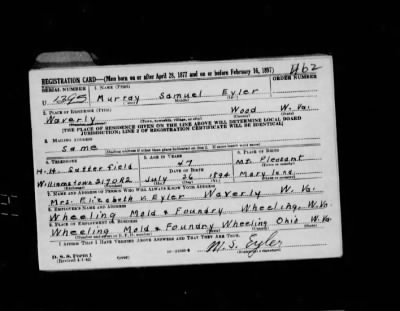 1162
REGISTRATION CARD—(Men born on or after April 28, 1877 and on or before February 16, 1897)
SERIAL NUMBER 1. NAME (Print) ORDER NUMBER
U 1395 Murray Samuel Eyler
(First) (Middle) (Last)
2. PLACE OF RESIDENCE (Print)
Waverly Wood W. Va.
(Number and street) (Town, township, village, or city) (County) (State)
[THE PLACE OF RESIDENCE GIVEN ON THE LINE ABOVE WILL DETERMINE LOCAL BOARD
JURISDICTION; LINE 2 OF REGISTRATION CERTIFICATE WILL BE IDENTICAL]
3. MAILING ADDRESS
Same
[Mailing address if other than place indicated on line 2. If same insert word same]
4. TELEPHONE 5. AGE IN YEARS 6. PLACE OF BIRTH
H.H. Satterfield 47 Mt. Pleasant
DATE OF BIRTH
Williamstown July 26 1894 Maryland
7. NAME AND ADDRESS OF PERSON WHO WILL ALWAYS KNOW YOUR ADDRESS
Mrs. Elizabeth V. Eyler Waverly W. Va.
8. EMPLOYER'S NAME AND ADDRESS
Wheeling Mold & Foundry Wheeling, W. Va.
9. PLACE OF EMPLOYMENT OR BUSINESS
Wheeling Mold & Foundry Wheeling Ohio W. Va.
(Number and street or R. F. D. number) (Town) (County) (State)
I AFFIRM THAT I HAVE VERIFIED ABOVE ANSWERS AND THAT THEY ARE TRUE.
D. S. S. Form 1 M. S. Eyler
(Revised 4-1-42) (Registrant's signature)